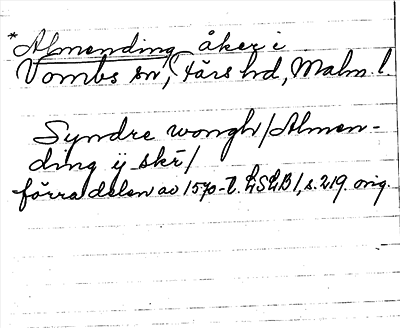 *Almending åker i
Vombs sn, Färs hd, Malm. l.
Syndre wongh/Almen-
ding ij skr/
förra delen av 1570-t. LSLB I, s. 219 orig.